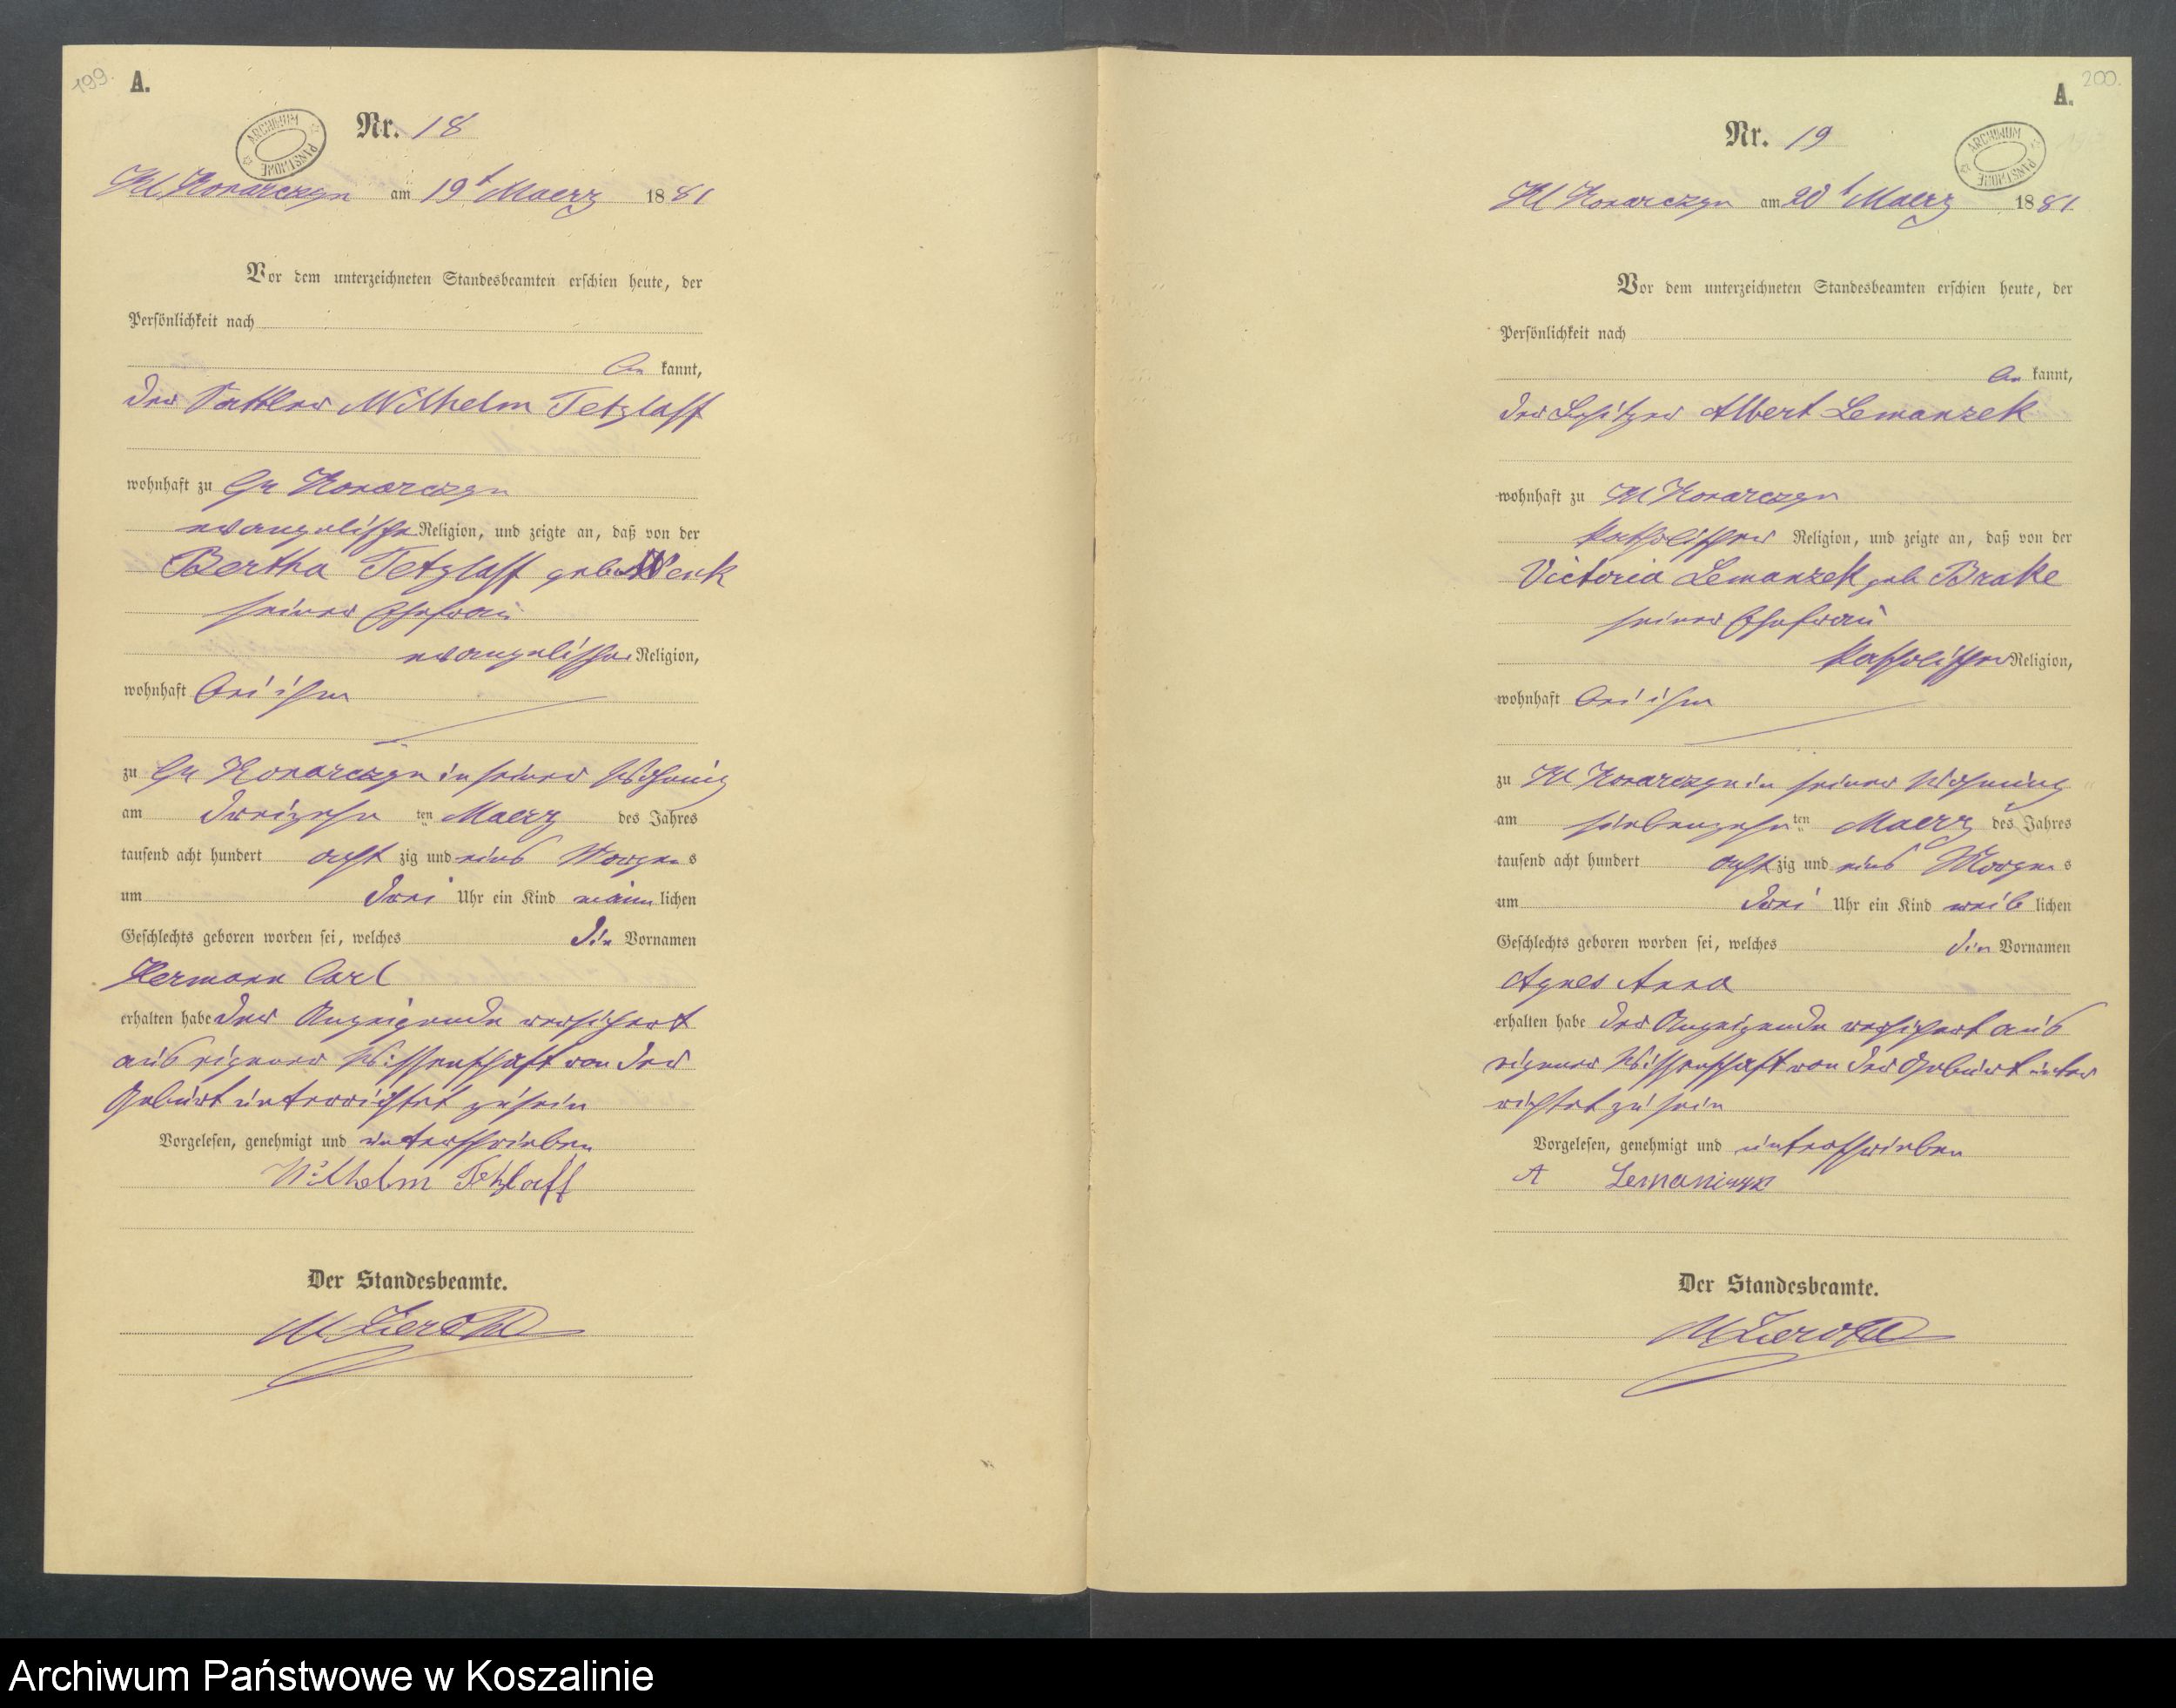 199.
A.
ARCHIWUM PAŃSTWOWE
Nr. 18
Kl. Konarczyn am 19t Maerz 1881
Vor dem unterzeichneten Standesbeamten erschien heute, der
Persönlichkeit nach
be kannt,
der Sattler Wilhelm Tetzlaff
wohnhaft zu Gr Konarczyn
evangelischer Religion, und zeigte an, daß von der
Bertha Tetzlaff geb. Wenk
seiner Ehefrau
evangelischer Religion,
wohnhaft bei ihm
zu Gr Konarczyn in seiner Wohnung
am dreizehn ten Maerz des Jahres
tausend acht hundert acht zig und eins Morgens
um drei Uhr ein Kind männ lichen
Geschlechts geboren worden sei, welches die Vornamen
Hermann Carl
erhalten habe der Anzeigende versichert
aus eigener Wissenschaft von der
Geburt unterrichtet zu sein
Vorgelesen, genehmigt und unterschrieben
Wilhelm Tetzlaff
Der Standesbeamte.
200.
A.
ARCHIWUM PAŃSTWOWE
Nr. 19
Kl Konarczyn am 20t Maerz 1881
Vor dem unterzeichneten Standesbeamten erschien heute, der
Persönlichkeit nach
be kannt,
der Besitzer Albert Lemanzek
wohnhaft zu Kl Konarczyn
katholischer Religion, und zeigte an, daß von der
Victoria Lemanzek geb Brake
seiner Ehefrau
katholischer Religion,
wohnhaft bei ihm
zu Kl Konarczyn in seiner Wohnung
am siebenzehn ten Maerz des Jahres
tausend acht hundert acht zig und eins Morgens
um drei Uhr ein Kind weib lichen
Geschlechts geboren worden sei, welches die Vornamen
Agnes Anna
erhalten habe der Anzeigende versichert aus
eigener Wissenschaft von der Geburt unter
richtet zu sein
Vorgelesen, genehmigt und unterschrieben
A
Der Standesbeamte.
Archiwum Państwowe w Koszalinie